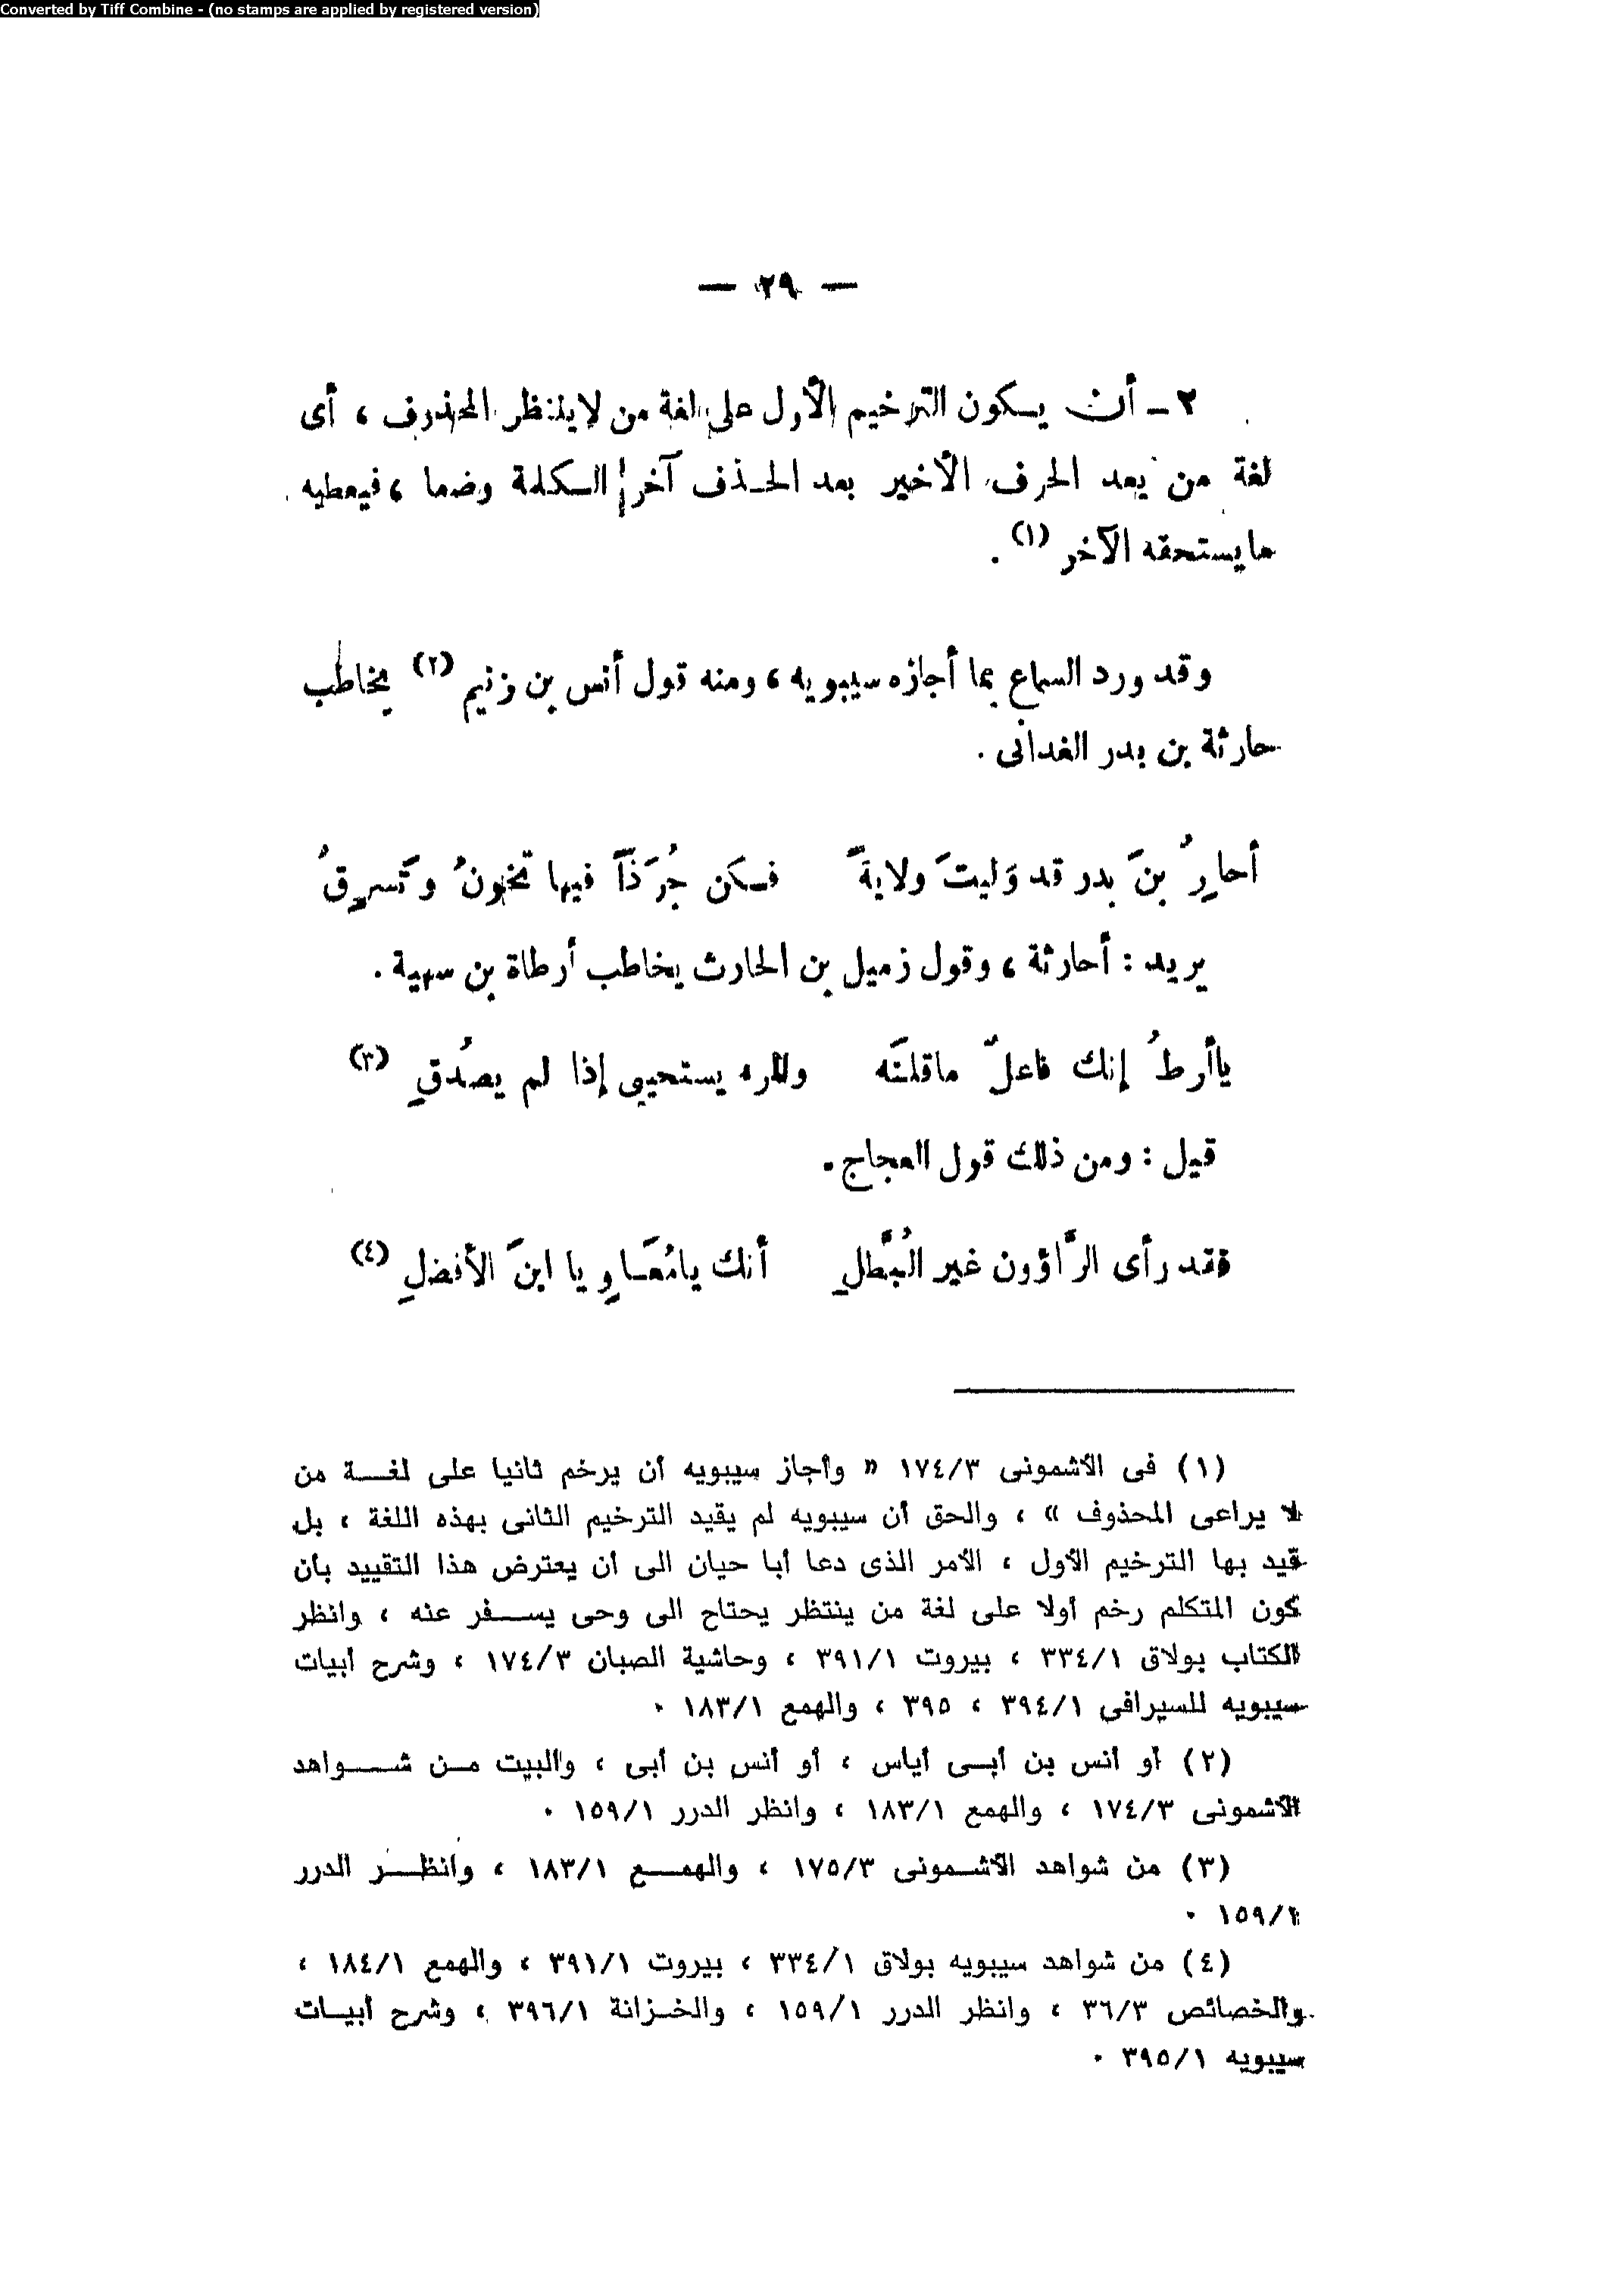 Converted by Tiff Combine - (no stamps are applied by registered version)
— ٢٩ —
٢ - أن يكون الترخيم الأول على لغة من لا ينتظر المحذوف ، أى
لغة من يعد الحرف الأخير بعد الحذف آخر الكلمة وضما ، فيعطيه
ما يستحقه الآخر (١) .
وقد ورد السماع بما أجازه سيبويه ، ومنه قول أنس بن زنيم (٢) يخاطب
حارثة بن بدر الغدانى .
أحارِ بنَ بدر قد وَليتَ ولايةً فكن جُرَذاً فيها تخونُ وتَسرِقُ
يريد : أحارثة ، وقول زميل بن الحارث يخاطب أرطاة بن سهية .
يا أرطُ إنك فاعلٌ ما قلتَه والمرء يستحيى إذا لم يصدُقِ (٣)
قيل : ومن ذلك قول العجاج .
فقد رأى الرَّاؤون غير البُطَّلِ أنك يا مُعَاوِ يا ابنَ الأفضلِ (٤)
(١) فى الأشمونى ١٧٤/٣ « وأجاز سيبويه أن يرخم ثانيا على لغة من
لا يراعى المحذوف » ، والحق أن سيبويه لم يقيد الترخيم الثانى بهذه اللغة ، بل
قيد بها الترخيم الأول ، الأمر الذى دعا أبا حيان الى أن يعترض هذا التقييد بأن
كون المتكلم رخم أولا على لغة من ينتظر يحتاج الى وحى يسفر عنه ، وانظر
الكتاب بولاق ٣٣٤/١ ، بيروت ٣٩١/١ ، وحاشية الصبان ١٧٤/٣ ، وشرح أبيات
سيبويه للسيرافى ٣٩٤/١ ، ٣٩٥ ، والهمع ١٨٣/١ .
(٢) أو أنس بن أبى أياس ، أو أنس بن أبى ، والبيت من شواهد
الأشمونى ١٧٤/٣ ، والهمع ١٨٣/١ ، وانظر الدرر ١٥٩/١ .
(٣) من شواهد الأشمونى ١٧٥/٣ ، والهمع ١٨٣/١ ، وانظر الدرر
١٥٩/١ .
(٤) من شواهد سيبويه بولاق ٣٣٤/١ ، بيروت ٣٩١/١ ، والهمع ١٨٤/١ ،
والخصائص ٣٦/٣ ، وانظر الدرر ١٥٩/١ ، والخزانة ٣٩٦/١ ، وشرح أبيات
سيبويه ٣٩٥/١ .